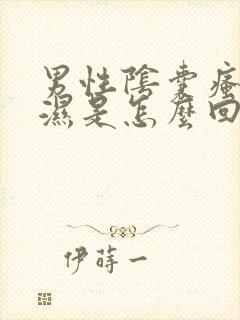 男性陰囊瘙
濕是怎麼回
伊蒔一